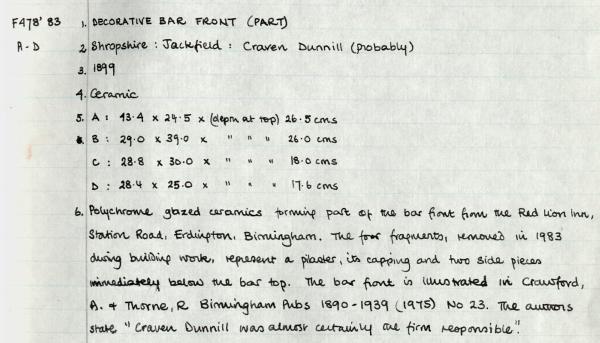 F478'83 1. DECORATIVE BAR FRONT (PART)
A-D 2. Shropshire : Jackfield : Craven Dunnill (probably)
3. 1899
4. Ceramic
5. A : 43.4 x 24.5 x (depth at top) 26.5 cms
B : 29.0 x 39.0 x " " " 26.0 cms
C : 28.8 x 30.0 x " " " 18.0 cms
D : 28.4 x 25.0 x " " " 17.6 cms
6. Polychrome glazed ceramics forming part of the bar front from the Red Lion Inn,
Station Road, Erdington, Birmingham. The four fragments, removed in 1983
during building work, represent a pilaster, its capping and two side pieces
immediately below the bar top. The bar front is illustrated in Crawford,
A. & Thorne, R Birmingham Pubs 1890-1939 (1975) No 23. The authors
state "Craven Dunnill was almost certainly the firm responsible".